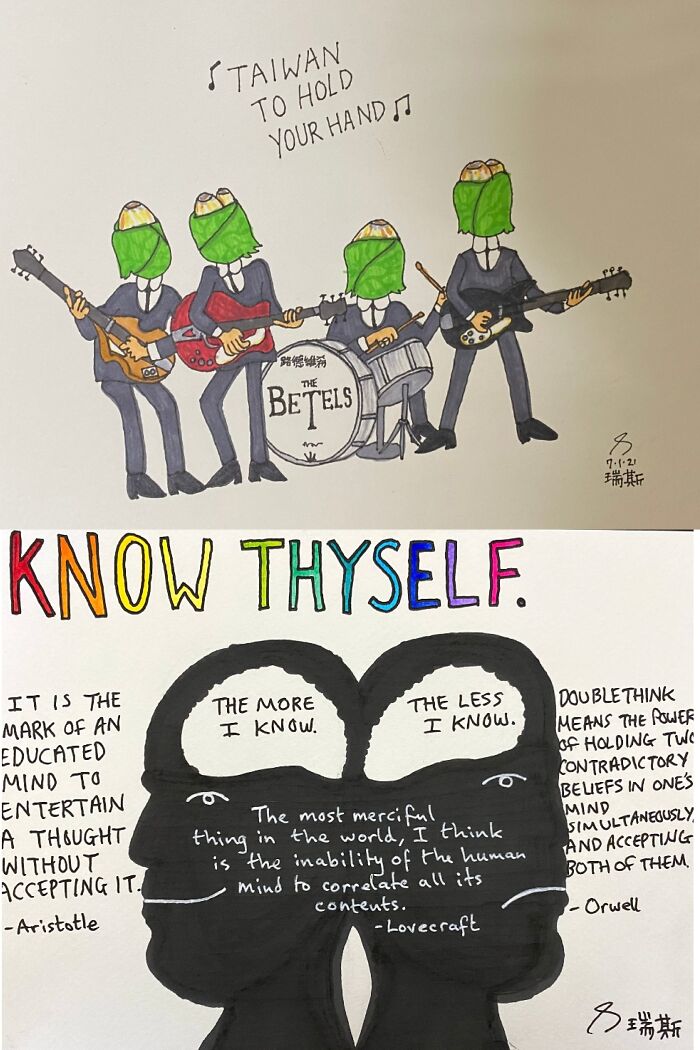 TAIWAN
TO HOLD
YOUR HAND
路德維希
THE
BETELS
7.1.21
瑞斯
KNOW THYSELF.
IT IS THE
MARK OF AN
EDUCATED
MIND TO
ENTERTAIN
A THOUGHT
WITHOUT
ACCEPTING IT.
-Aristotle
THE MORE
I KNOW.
THE LESS
I KNOW.
The most merciful
thing in the world, I think
is the inability of the human
mind to correlate all its
contents.
-Lovecraft
DOUBLETHINK
MEANS THE POWER
OF HOLDING TWO
CONTRADICTORY
BELIEFS IN ONE'S
MIND
SIMULTANEOUSLY,
AND ACCEPTING
BOTH OF THEM.
- Orwell
瑞斯